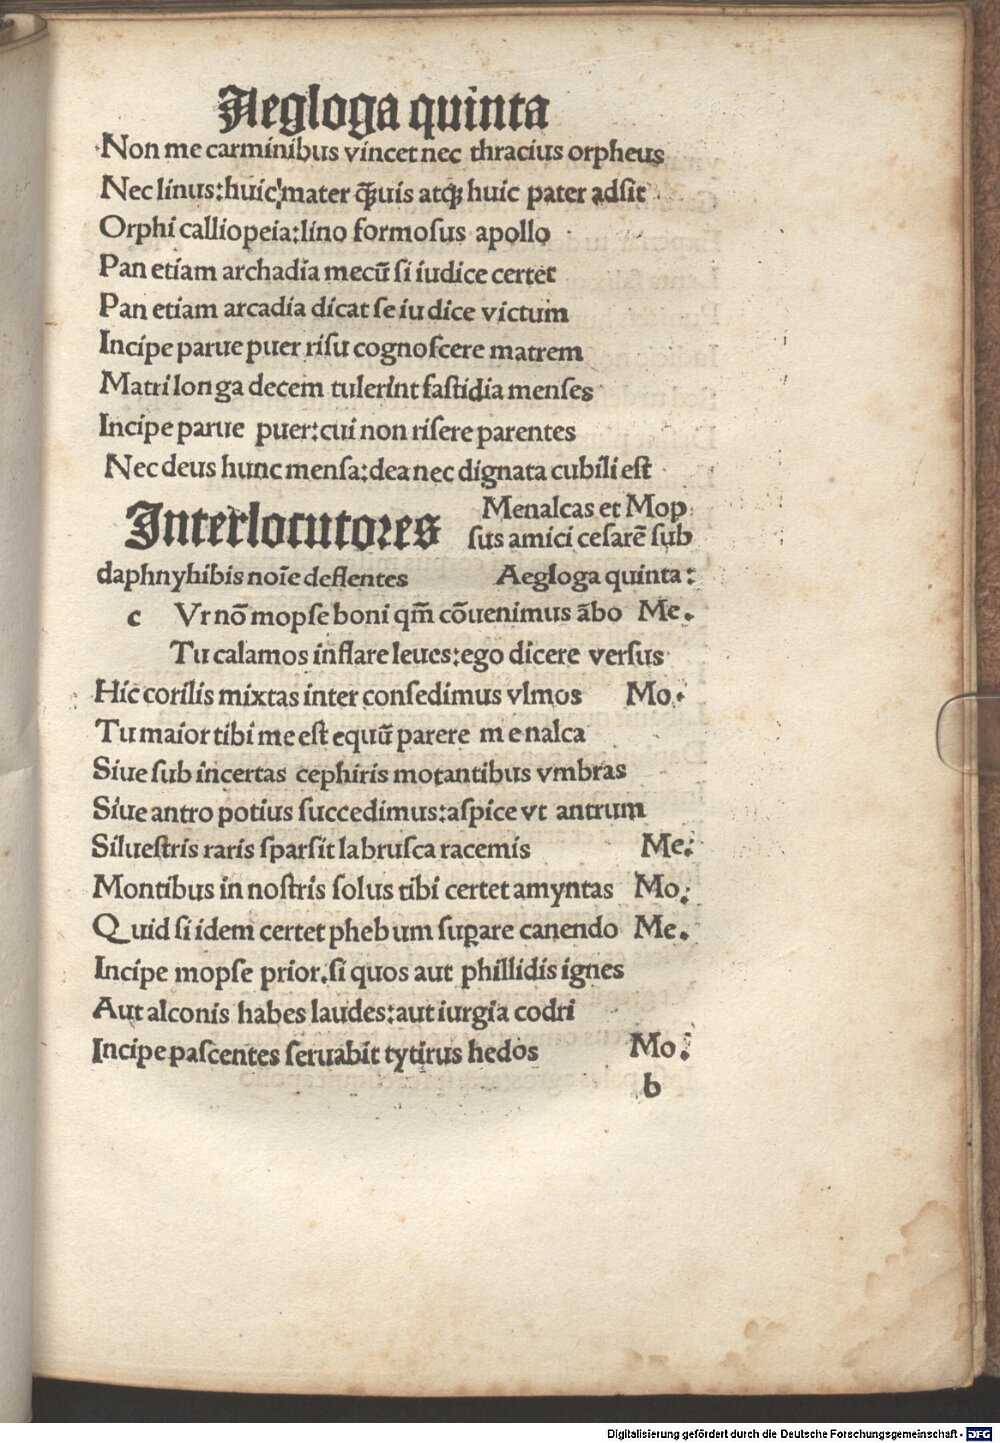 Aegloga quinta
Non me carminibus vincet nec thracius orpheus
Nec linus:huic mater q̃uis atq; huic pater adſit
Orphi calliopeia:lino formoſus apollo
Pan etiam archadia mecũ ſi iudice certet
Pan etiam arcadia dicat ſe iu dice victum
Incipe parue puer riſu cognoſcere matrem
Matri lon ga decem tulerint faſtidia menſes
Incipe parue puer:cui non riſere parentes
Nec deus hunc menſa:dea nec dignata cubili eſt
Interlocutores Menalcas et Mop
ſus amici ceſarẽ ſub
daphnyhibis noĩe deflentes Aegloga quinta:
c Vr nõ mopſe boni qm̃ cõuenimus ãbo Me.
Tu calamos inflare leues:ego dicere verſus
Hic corilis mixtas inter conſedimus vlmos Mo.
Tu maior tibi me eſt equũ parere m e nalca
Siue ſub incertas cephiris motantibus vmbras
Siue antro potius ſuccedimus:aſpice vt antrum
Silueſtris raris ſparſit labruſca racemis Me:
Montibus in noſtris ſolus tibi certet amyntas Mo:
Quid ſi idem certet pheb um ſupare canendo Me.
Incipe mopſe prior.ſi quos aut phillidis ignes
Aut alconis habes laudes:aut iurgia codri
Incipe paſcentes ſeruabit tytirus hedos Mo:
b
Digitalisierung gefördert durch die Deutsche Forschungsgemeinschaft - DFG